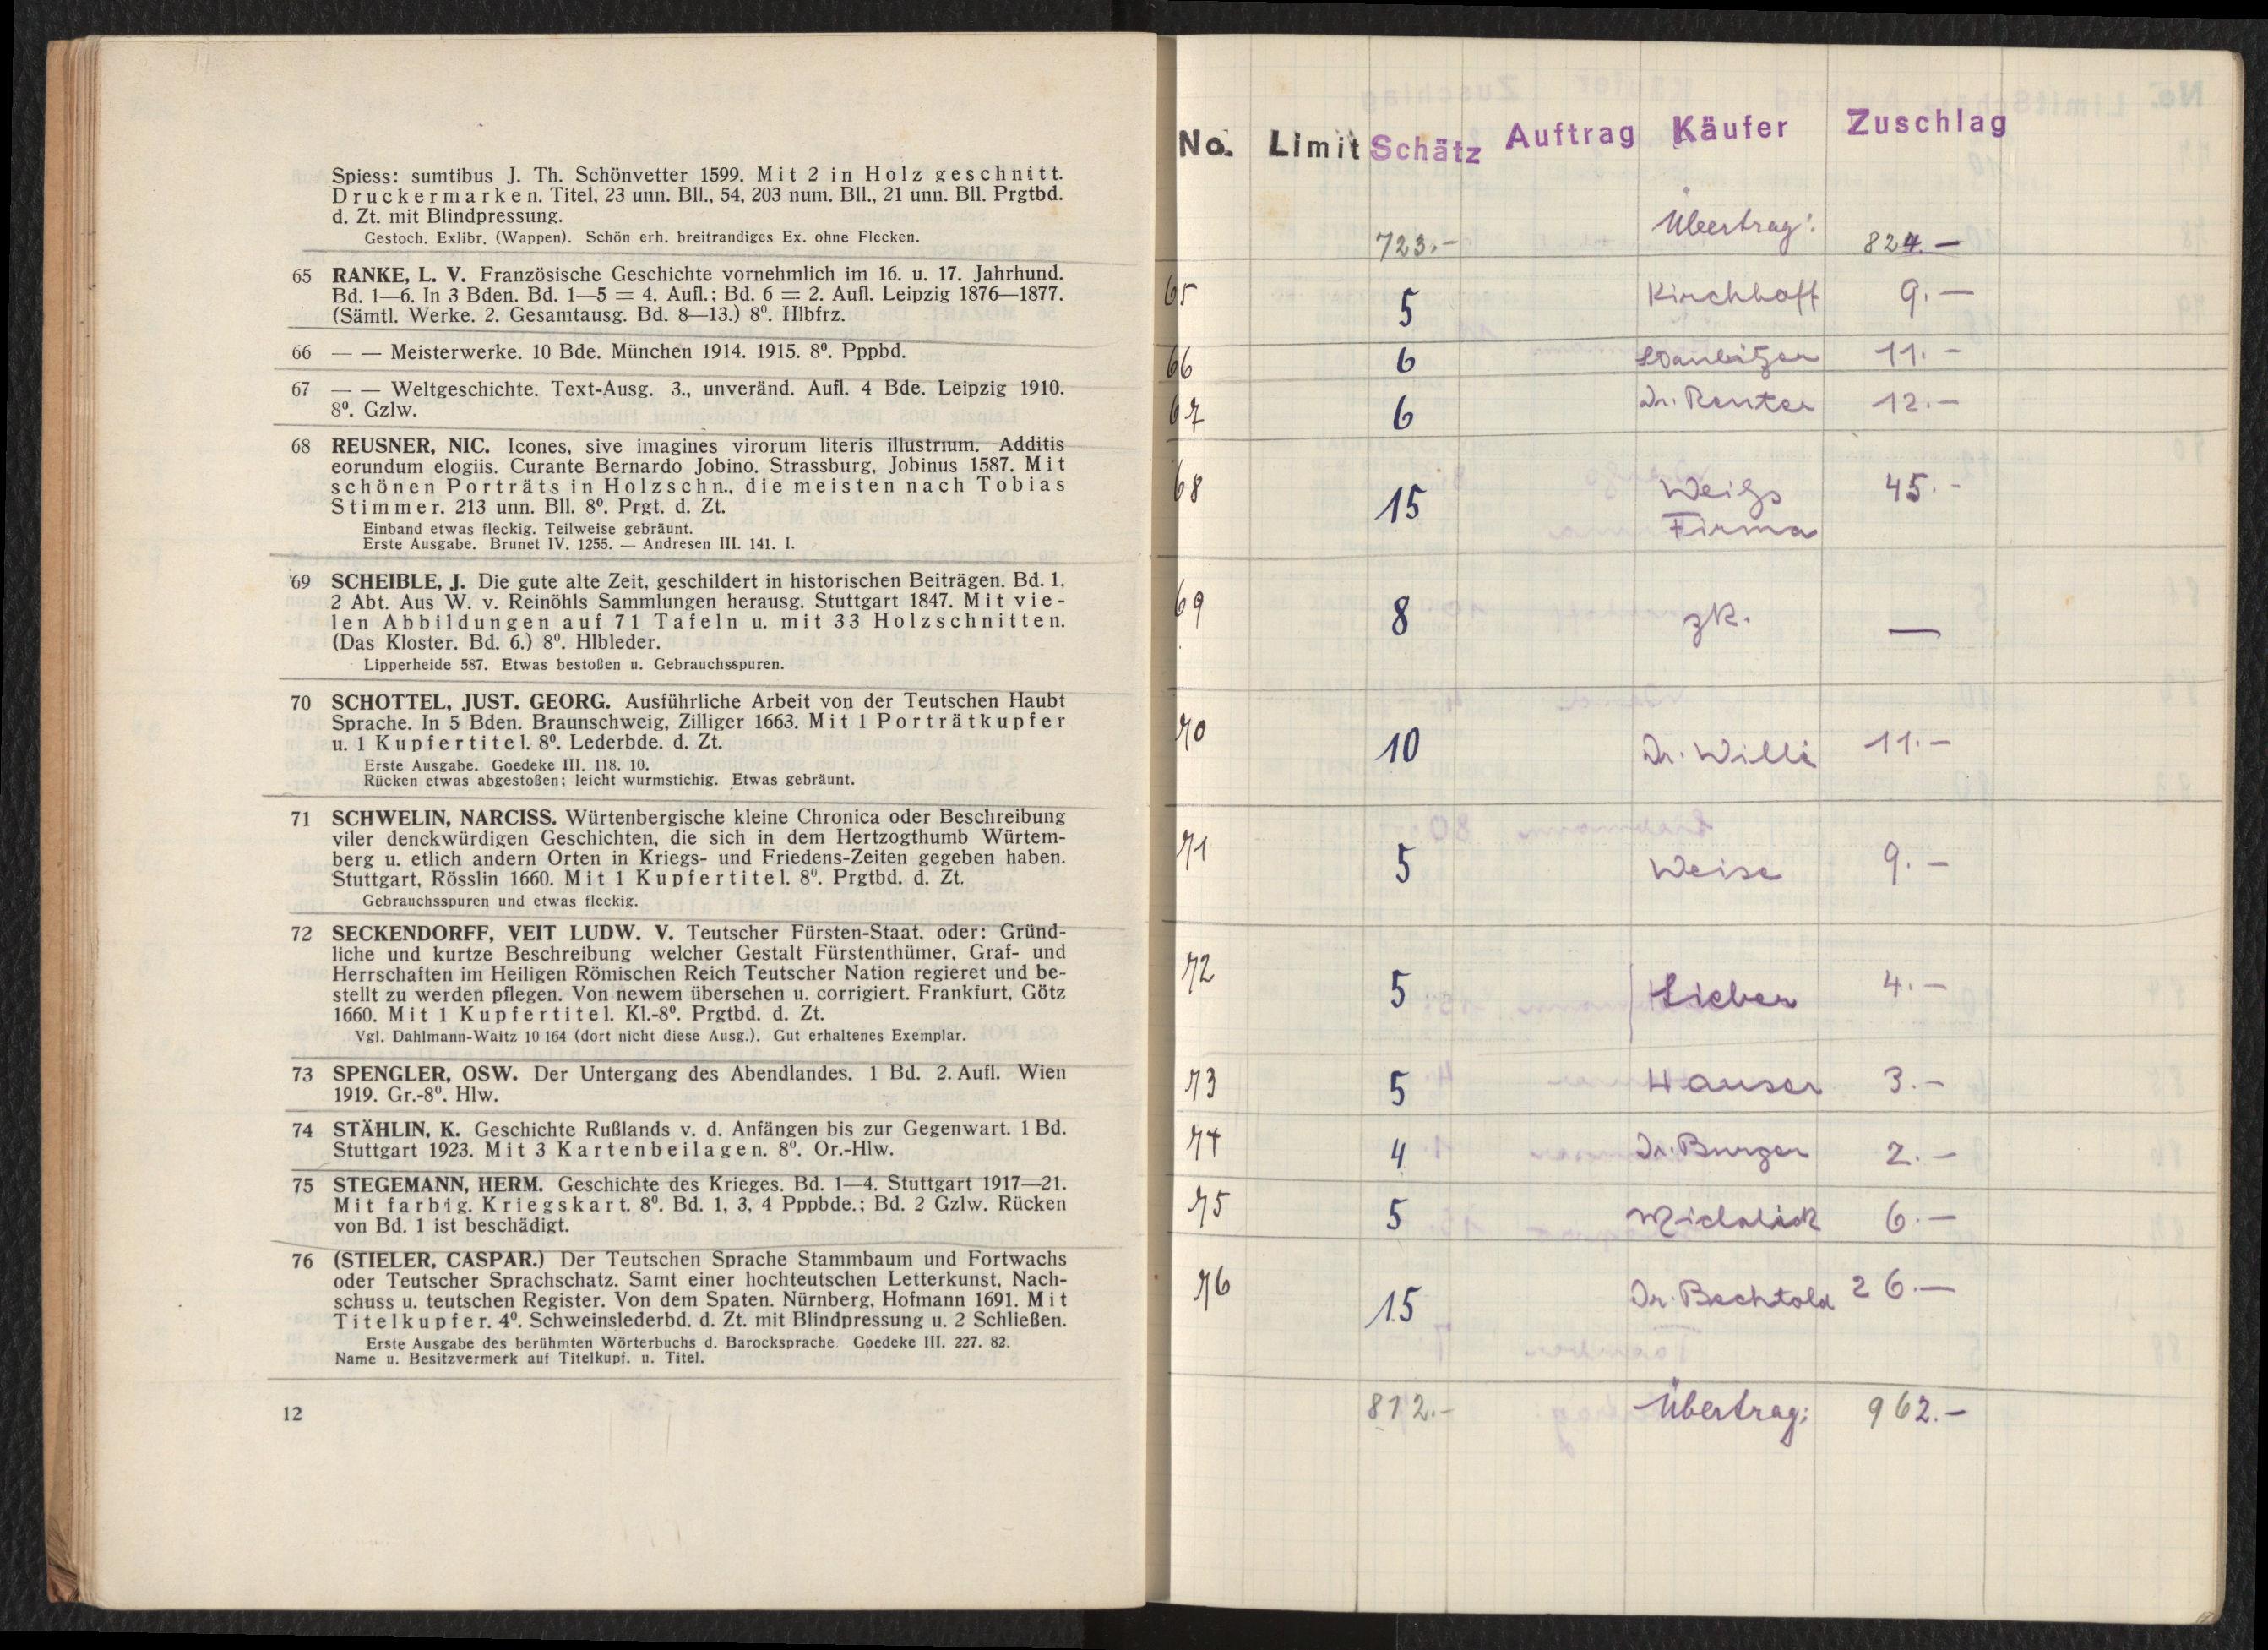 Spiess: sumtibus J. Th. Schönvetter 1599. Mit 2 in Holz geschnitt.
Druckermarken. Titel, 23 unn. Bll., 54, 203 num. Bll., 21 unn. Bll. Prgtbd.
d. Zt. mit Blindpressung.
Gestoch. Exlibr. (Wappen). Schön erh. breitrandiges Ex. ohne Flecken.
65 RANKE, L. V. Französische Geschichte vornehmlich im 16. u. 17. Jahrhund.
Bd. 1—6. In 3 Bden. Bd. 1—5 = 4. Aufl.; Bd. 6 = 2. Aufl. Leipzig 1876—1877.
(Sämtl. Werke. 2. Gesamtausg. Bd. 8—13.) 8⁰. Hlbfrz.
66 — — Meisterwerke. 10 Bde. München 1914. 1915. 8⁰. Pppbd.
67 — — Weltgeschichte. Text-Ausg. 3., unveränd. Aufl. 4 Bde. Leipzig 1910.
8⁰. Gzlw.
68 REUSNER, NIC. Icones, sive imagines virorum literis illustrium. Additis
eorundum elogiis. Curante Bernardo Jobino. Strassburg, Jobinus 1587. Mit
schönen Porträts in Holzschn., die meisten nach Tobias
Stimmer. 213 unn. Bll. 8⁰. Prgt. d. Zt.
Einband etwas fleckig. Teilweise gebräunt.
Erste Ausgabe. Brunet IV. 1255. — Andresen III. 141. I.
69 SCHEIBLE, J. Die gute alte Zeit, geschildert in historischen Beiträgen. Bd. 1,
2 Abt. Aus W. v. Reinöhls Sammlungen herausg. Stuttgart 1847. Mit vie-
len Abbildungen auf 71 Tafeln u. mit 33 Holzschnitten.
(Das Kloster. Bd. 6.) 8⁰. Hlbleder.
Lipperheide 587. Etwas bestoßen u. Gebrauchsspuren.
70 SCHOTTEL, JUST. GEORG. Ausführliche Arbeit von der Teutschen Haubt
Sprache. In 5 Bden. Braunschweig, Zilliger 1663. Mit 1 Porträtkupfer
u. 1 Kupfertitel. 8⁰. Lederbde. d. Zt.
Erste Ausgabe. Goedeke III. 118. 10.
Rücken etwas abgestoßen; leicht wurmstichig. Etwas gebräunt.
71 SCHWELIN, NARCISS. Würtenbergische kleine Chronica oder Beschreibung
viler denckwürdigen Geschichten, die sich in dem Hertzogthumb Würtem-
berg u. etlich andern Orten in Kriegs- und Friedens-Zeiten gegeben haben.
Stuttgart, Rösslin 1660. Mit 1 Kupfertitel. 8⁰. Prgtbd. d. Zt.
Gebrauchsspuren und etwas fleckig.
72 SECKENDORFF, VEIT LUDW. V. Teutscher Fürsten-Staat, oder: Gründ-
liche und kurtze Beschreibung welcher Gestalt Fürstenthümer, Graf- und
Herrschaften im Heiligen Römischen Reich Teutscher Nation regieret und be-
stellt zu werden pflegen. Von newem übersehen u. corrigiert. Frankfurt, Götz
1660. Mit 1 Kupfertitel. Kl.-8⁰. Prgtbd. d. Zt.
Vgl. Dahlmann-Waitz 10 164 (dort nicht diese Ausg.). Gut erhaltenes Exemplar.
73 SPENGLER, OSW. Der Untergang des Abendlandes. 1 Bd. 2. Aufl. Wien
1919. Gr.-8⁰. Hlw.
74 STÄHLIN, K. Geschichte Rußlands v. d. Anfängen bis zur Gegenwart. 1 Bd.
Stuttgart 1923. Mit 3 Kartenbeilagen. 8⁰. Or.-Hlw.
75 STEGEMANN, HERM. Geschichte des Krieges. Bd. 1—4. Stuttgart 1917—21.
Mit farbig. Kriegskart. 8⁰. Bd. 1, 3, 4 Pppbde.; Bd. 2 Gzlw. Rücken
von Bd. 1 ist beschädigt.
76 (STIELER, CASPAR.) Der Teutschen Sprache Stammbaum und Fortwachs
oder Teutscher Sprachschatz. Samt einer hochteutschen Letterkunst, Nach-
schuss u. teutschen Register. Von dem Spaten. Nürnberg, Hofmann 1691. Mit
Titelkupfer. 4⁰. Schweinslederbd. d. Zt. mit Blindpressung u. 2 Schließen.
Erste Ausgabe des berühmten Wörterbuchs d. Barocksprache. Goedeke III. 227. 82.
Name u. Besitzvermerk auf Titelkupf. u. Titel.
12
No. Limit Schätz Auftrag Käufer Zuschlag
723.- Übertrag: 824.—
65 5 Kirchhoff 9.—
66 6 11.—
67 6 Dr. Reuter 12.—
68 15 Weihs 45.-
Firma
69 8 zk. —
70 10 Dr. Willi 11.—
71 5 Weise 9.—
72 5 Lieber 4.—
73 5 Hauser 3.—
74 4 Dr. Burger 2.—
75 5 6.—
76 15 Dr. Bechtold 26.—
812.- Übertrag: 962.—